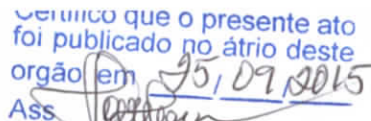 Certifico que o presente ato
foi publicado no átrio deste
orgão em 25/09/2015
Ass